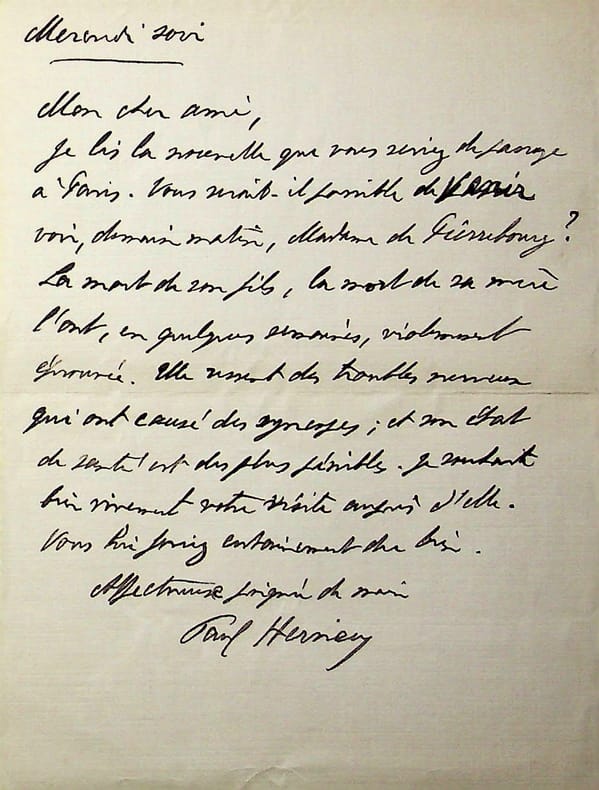 Mercredi soir
Mon cher ami,
Je lis la nouvelle que vous seriez de passage
à Paris. Vous serait-il possible de venir
voir, demain matin, Madame de Pierrebourg ?
La mort de son fils, la mort de sa mère
l'ont, en quelques semaines, violemment
éprouvée. Elle ressent des troubles nerveux
qui ont causé des syncopes ; et son état
de santé est des plus pénibles. Je souhait
bien vivement votre visite auprès d'elle.
Vous lui feriez certainement du bien.
Affectueuse poignée de main
Paul Hervieu